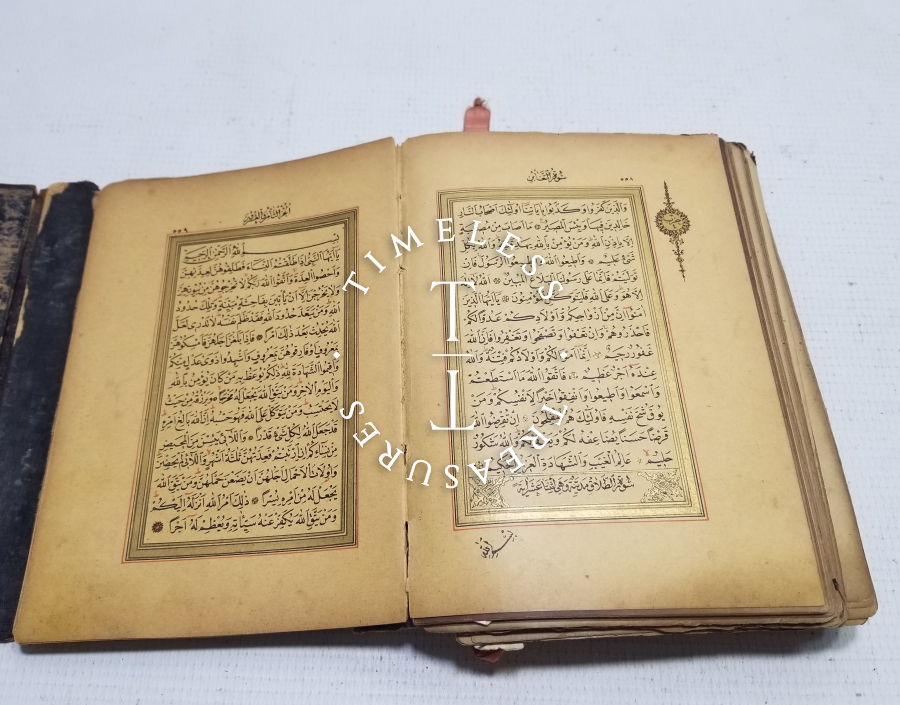 سورة التغابن ٥٥٨
وَالَّذِينَ كَفَرُوا وَكَذَّبُوا بِايَاتِنَا اُولٰئِكَ اَصْحَابُ النَّارِ
خَالِدِينَ فِيهَا وَبِئْسَ الْمَصِيرُ مَا اَصَابَ مِنْ مُصِيبَةٍ
اِلَّا بِاِذْنِ اللّٰهِ وَمَنْ يُؤْمِنْ بِاللّٰهِ يَهْدِ قَلْبَهُ وَاللّٰهُ بِكُلِّ
شَىْءٍ عَلِيمٌ وَاَطِيعُوا اللّٰهَ وَاَطِيعُوا الرَّسُولَ فَاِنْ
تَوَلَّيْتُمْ فَاِنَّمَا عَلٰى رَسُولِنَا الْبَلَاغُ الْمُبِينُ اَللّٰهُ لَا اِلٰهَ
اِلَّا هُوَ وَعَلَى اللّٰهِ فَلْيَتَوَكَّلِ الْمُؤْمِنُونَ يَا اَيُّهَا الَّذِينَ
اٰمَنُوا اِنَّ مِنْ اَزْوَاجِكُمْ وَاَوْلَادِكُمْ عَدُوًّا لَكُمْ
فَاحْذَرُوهُمْ وَاِنْ تَعْفُوا وَتَصْفَحُوا وَتَغْفِرُوا فَاِنَّ اللّٰهَ
غَفُورٌ رَحِيمٌ اِنَّمَا اَمْوَالُكُمْ وَاَوْلَادُكُمْ فِتْنَةٌ وَاللّٰهُ
عِنْدَهُ اَجْرٌ عَظِيمٌ فَاتَّقُوا اللّٰهَ مَا اسْتَطَعْتُمْ
وَاسْمَعُوا وَاَطِيعُوا وَاَنْفِقُوا خَيْرًا لِاَنْفُسِكُمْ وَمَنْ
يُوقَ شُحَّ نَفْسِهِ فَاُولٰئِكَ هُمُ الْمُفْلِحُونَ اِنْ تُقْرِضُوا اللّٰهَ
قَرْضًا حَسَنًا يُضَاعِفْهُ لَكُمْ وَيَغْفِرْ لَكُمْ وَاللّٰهُ شَكُورٌ
حَلِيمٌ عَالِمُ الْغَيْبِ وَالشَّهَادَةِ الْعَزِيزُ الْحَكِيمُ
سورة الطلاق مدنية وهي اثنتا عشرة اية
بسم الله
الجزء الثامن والعشرون ٥٥٩
بِسْمِ اللّٰهِ الرَّحْمٰنِ الرَّحِيمِ
يَا اَيُّهَا النَّبِىُّ اِذَا طَلَّقْتُمُ النِّسَاءَ فَطَلِّقُوهُنَّ لِعِدَّتِهِنَّ
وَاَحْصُوا الْعِدَّةَ وَاتَّقُوا اللّٰهَ رَبَّكُمْ لَا تُخْرِجُوهُنَّ مِنْ بُيُوتِهِنَّ
وَلَا يَخْرُجْنَ اِلَّا اَنْ يَأْتِينَ بِفَاحِشَةٍ مُبَيِّنَةٍ وَتِلْكَ حُدُودُ
اللّٰهِ وَمَنْ يَتَعَدَّ حُدُودَ اللّٰهِ فَقَدْ ظَلَمَ نَفْسَهُ لَا تَدْرِى لَعَلَّ
اللّٰهَ يُحْدِثُ بَعْدَ ذٰلِكَ اَمْرًا فَاِذَا بَلَغْنَ اَجَلَهُنَّ فَاَمْسِكُوهُنَّ
بِمَعْرُوفٍ اَوْ فَارِقُوهُنَّ بِمَعْرُوفٍ وَاَشْهِدُوا ذَوَىْ عَدْلٍ مِنْكُمْ
وَاَقِيمُوا الشَّهَادَةَ لِلّٰهِ ذٰلِكُمْ يُوعَظُ بِهِ مَنْ كَانَ يُؤْمِنُ بِاللّٰهِ
وَالْيَوْمِ الْاٰخِرِ وَمَنْ يَتَّقِ اللّٰهَ يَجْعَلْ لَهُ مَخْرَجًا وَيَرْزُقْهُ مِنْ حَيْثُ
لَا يَحْتَسِبُ وَمَنْ يَتَوَكَّلْ عَلَى اللّٰهِ فَهُوَ حَسْبُهُ اِنَّ اللّٰهَ بَالِغُ اَمْرِهِ
قَدْ جَعَلَ اللّٰهُ لِكُلِّ شَىْءٍ قَدْرًا وَاللَّائِى يَئِسْنَ مِنَ الْمَحِيضِ
مِنْ نِسَائِكُمْ اِنِ ارْتَبْتُمْ فَعِدَّتُهُنَّ ثَلٰثَةُ اَشْهُرٍ وَاللَّائِى لَمْ يَحِضْنَ
وَاُولَاتُ الْاَحْمَالِ اَجَلُهُنَّ اَنْ يَضَعْنَ حَمْلَهُنَّ وَمَنْ يَتَّقِ اللّٰهَ
يَجْعَلْ لَهُ مِنْ اَمْرِهِ يُسْرًا ذٰلِكَ اَمْرُ اللّٰهِ اَنْزَلَهُ اِلَيْكُمْ
وَمَنْ يَتَّقِ اللّٰهَ يُكَفِّرْ عَنْهُ سَيِّاٰتِهِ وَيُعْظِمْ لَهُ اَجْرًا
TIMELESS
TT
TREASURES